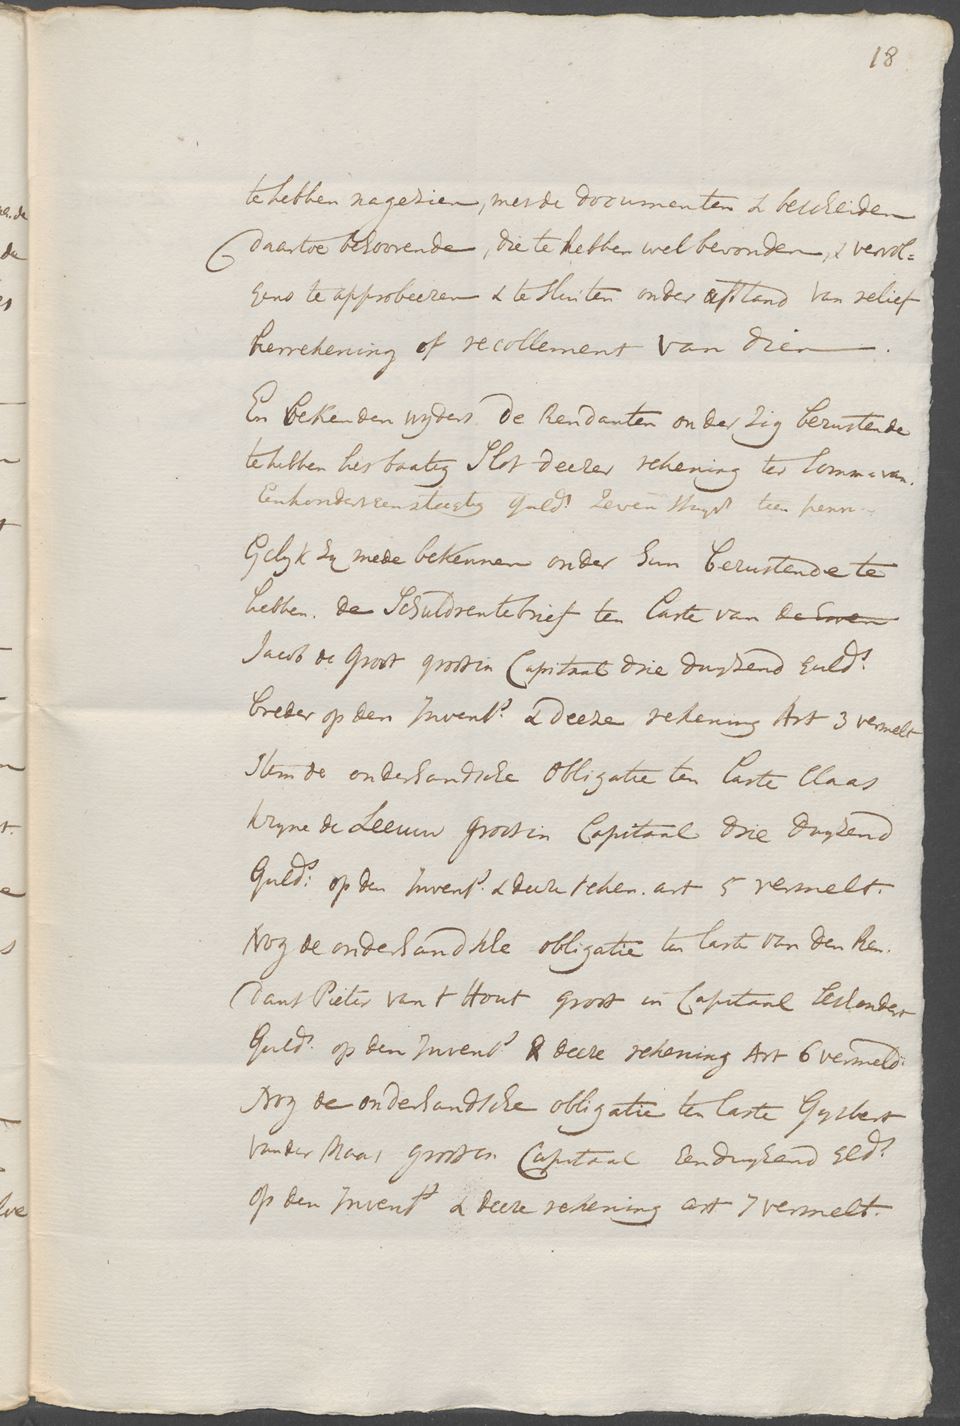 18
te hebben nagezien, met de documenten & bescheiden
daartoe behoorende, die te hebben wel bevonden, & vervol=
gens te approbeeren & te sluiten onder afstand van relief
herrekening of recollement van dien.
En bekenden wyders de Rendanten onder zig berustende
te hebben het batig Slot deezer rekening ter somma van
Eenhondert eenstestig Guld.s Zeven penn.
Gelyk zy mede bekennen onder hun berustende te
hebben. de Schuldrentebrief ten laste van de Erven
Jacob de Groot groot in Capitaal drie duyzend Guld.s
breder op den Invent.s & deeze rekening Art 3 vermelt
Item de onderhandsche obligatie ten laste Claas
kryne de Leeuw groot in Capitaal drie duyzend
Guld.s op den Invent.s & deeze reken. art 5 vermelt.
Nog de onderhandsche obligatie ten laste van den Ren.
dant Pieter van t Hout groot in Capitaal seshondert
Guld. op den Invent.s & deeze rekening Art 6 vermeld.
Nog de onderhandsche obligatie ten laste Gysbert
van der Maas groot in Capitaal Eenduyzend Gld.s
op den Invent.s & deeze rekening art 7 vermelt.